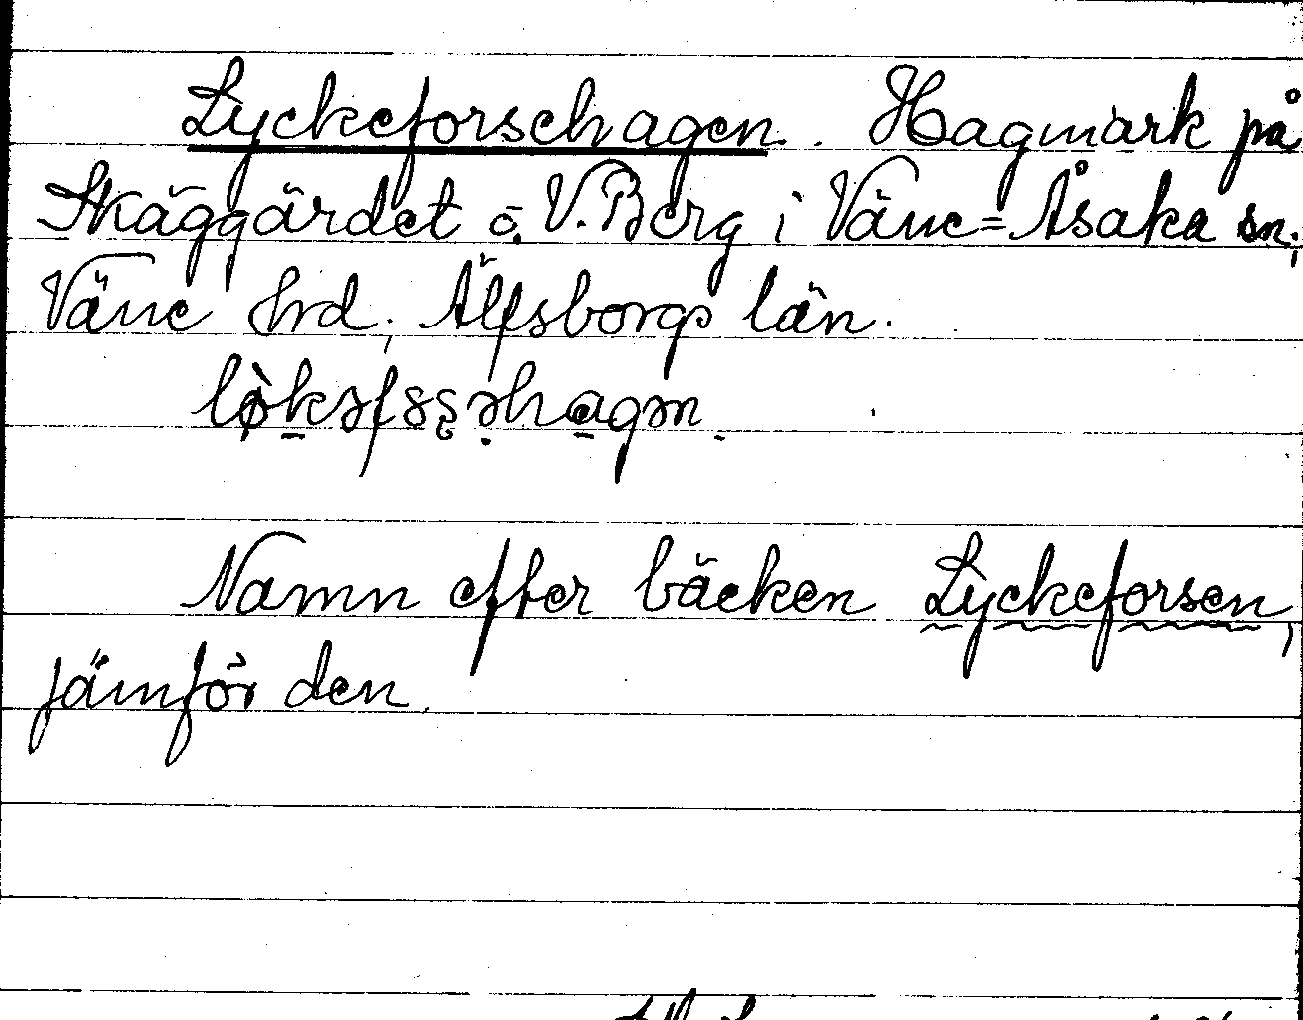 Lyckeforsehagen. Hagmark på
Skäggärdet o. V. Berg i Väne=Åsaka sn;
Väne hrd; Älfsborgs län.
Namn efter bäcken Lyckeforsen,
jämför den.